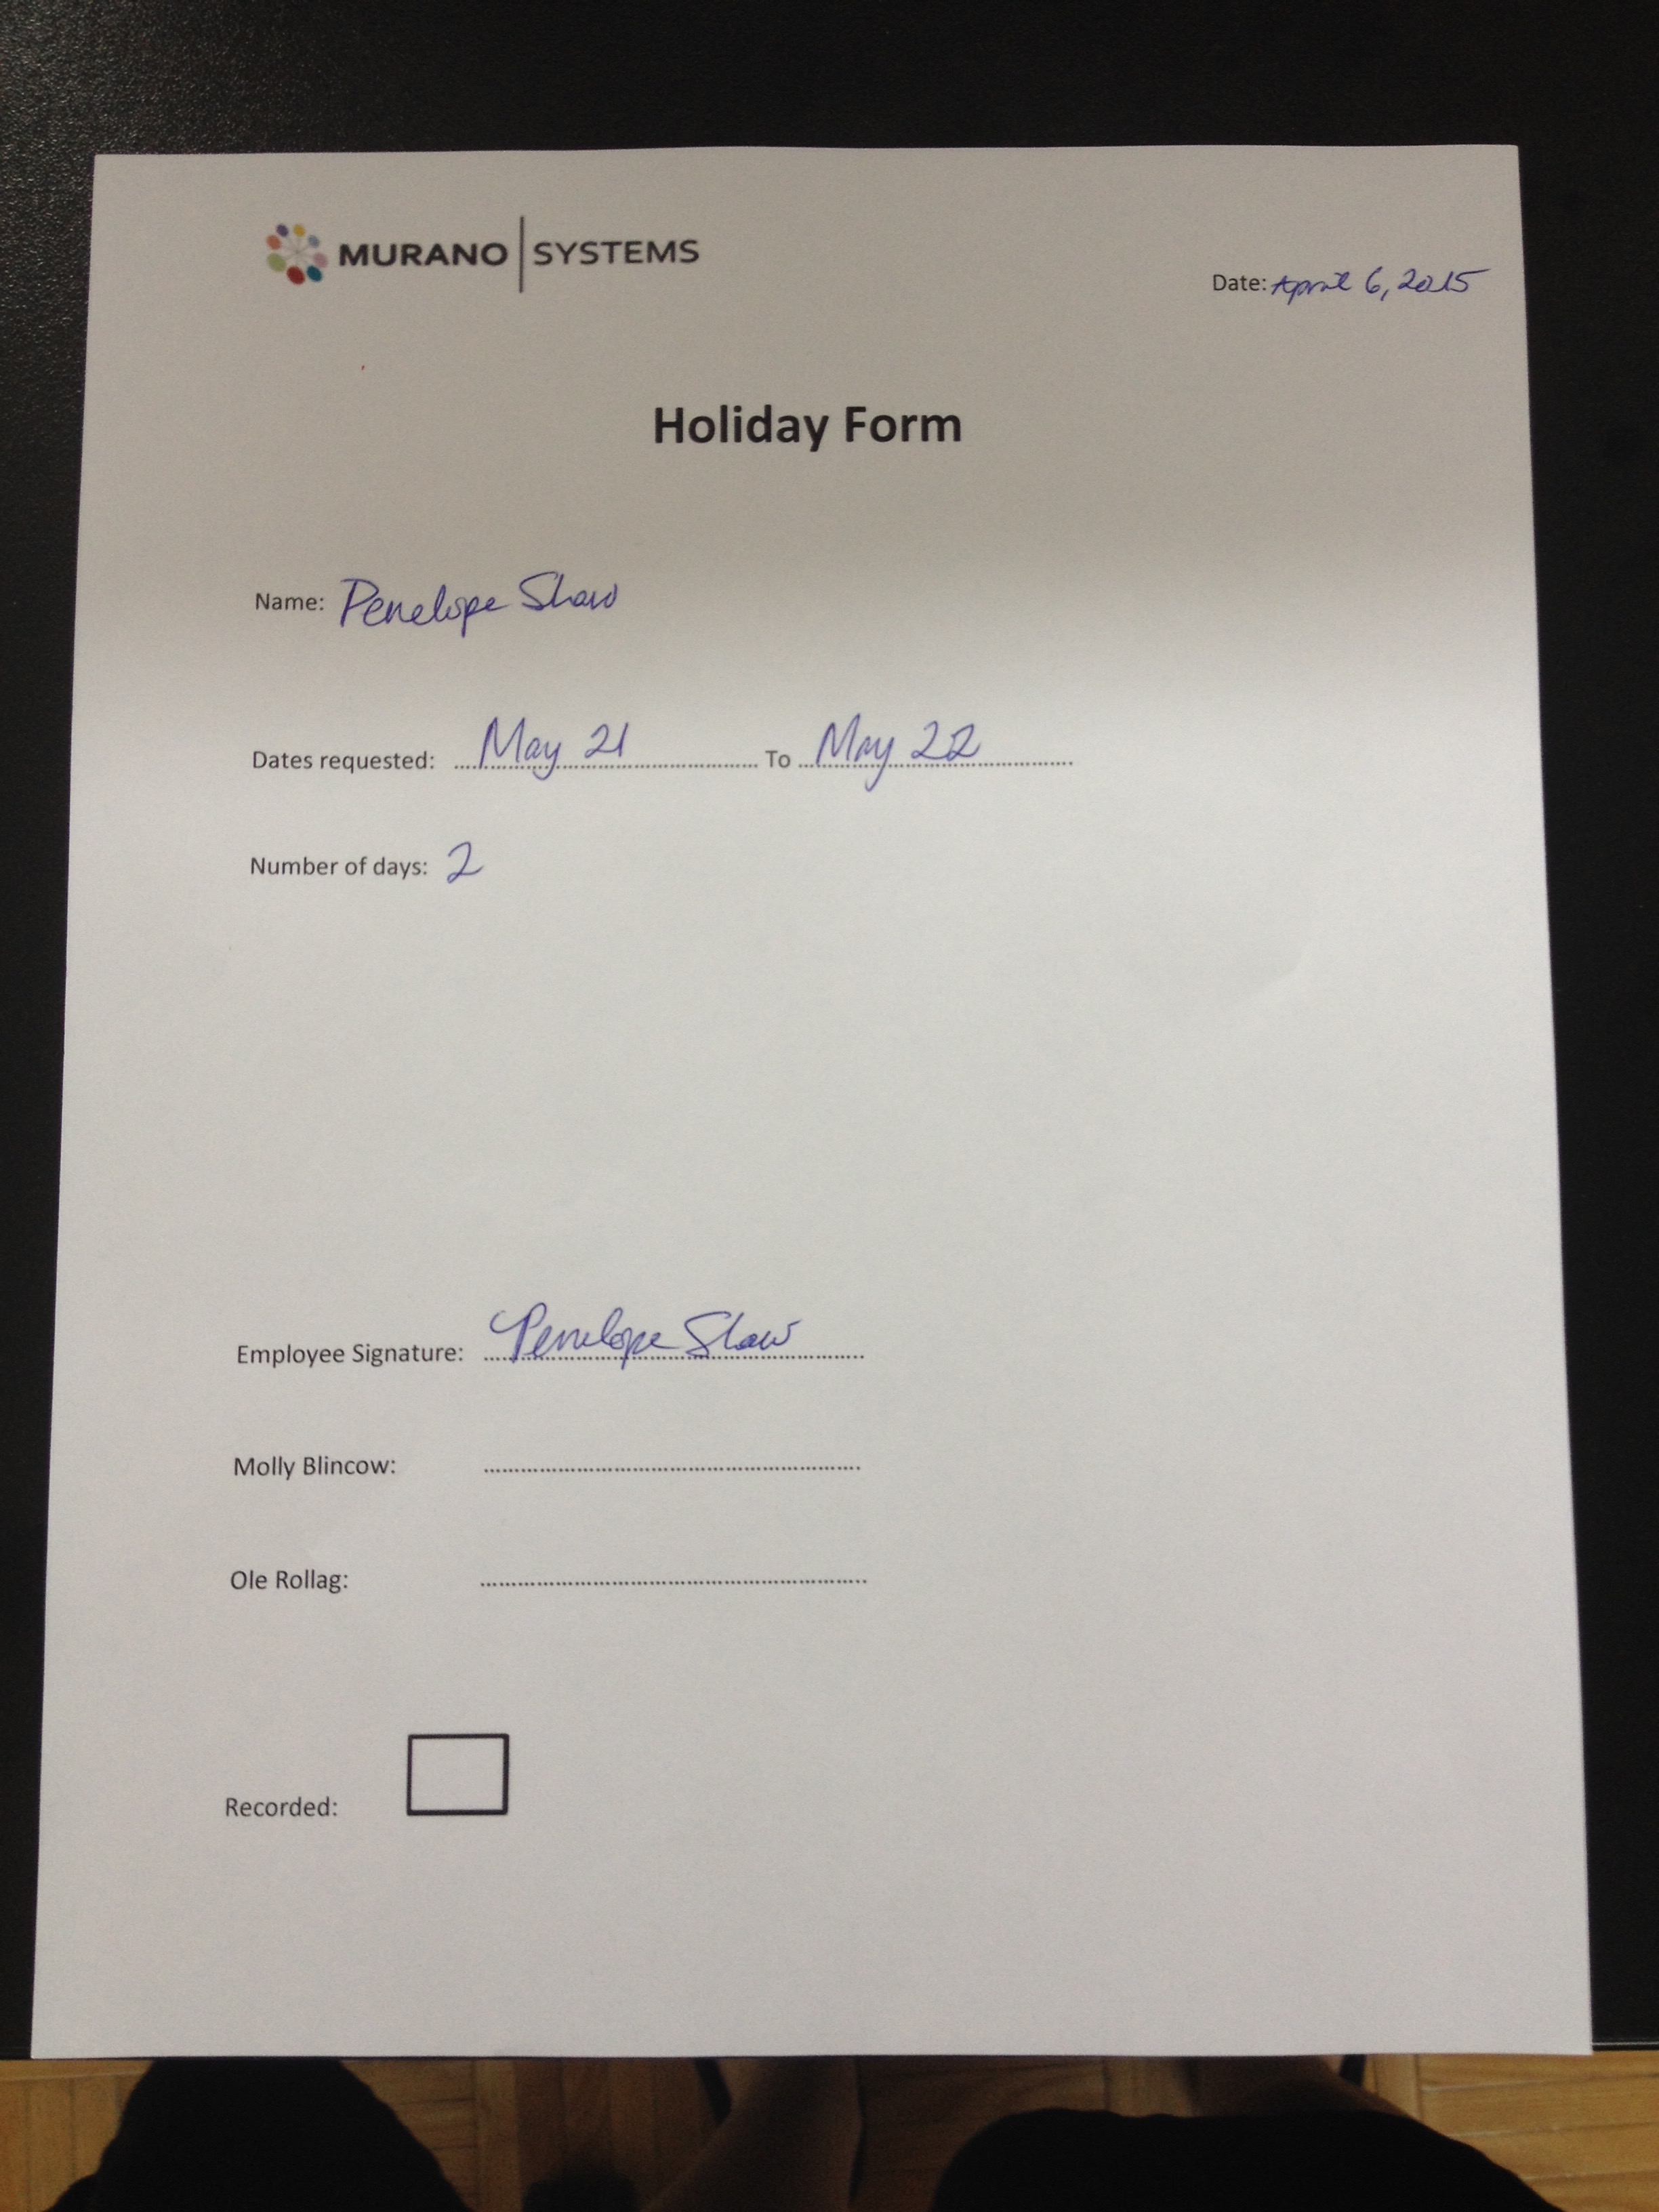 MURANO | SYSTEMS
Date: April 6, 2015
Holiday Form
Name: Penelope Shaw
Dates requested: May 21 To May 22
Number of days: 2
Employee Signature: Penelope Shaw
Molly Blincow:
Ole Rollag:
Recorded: